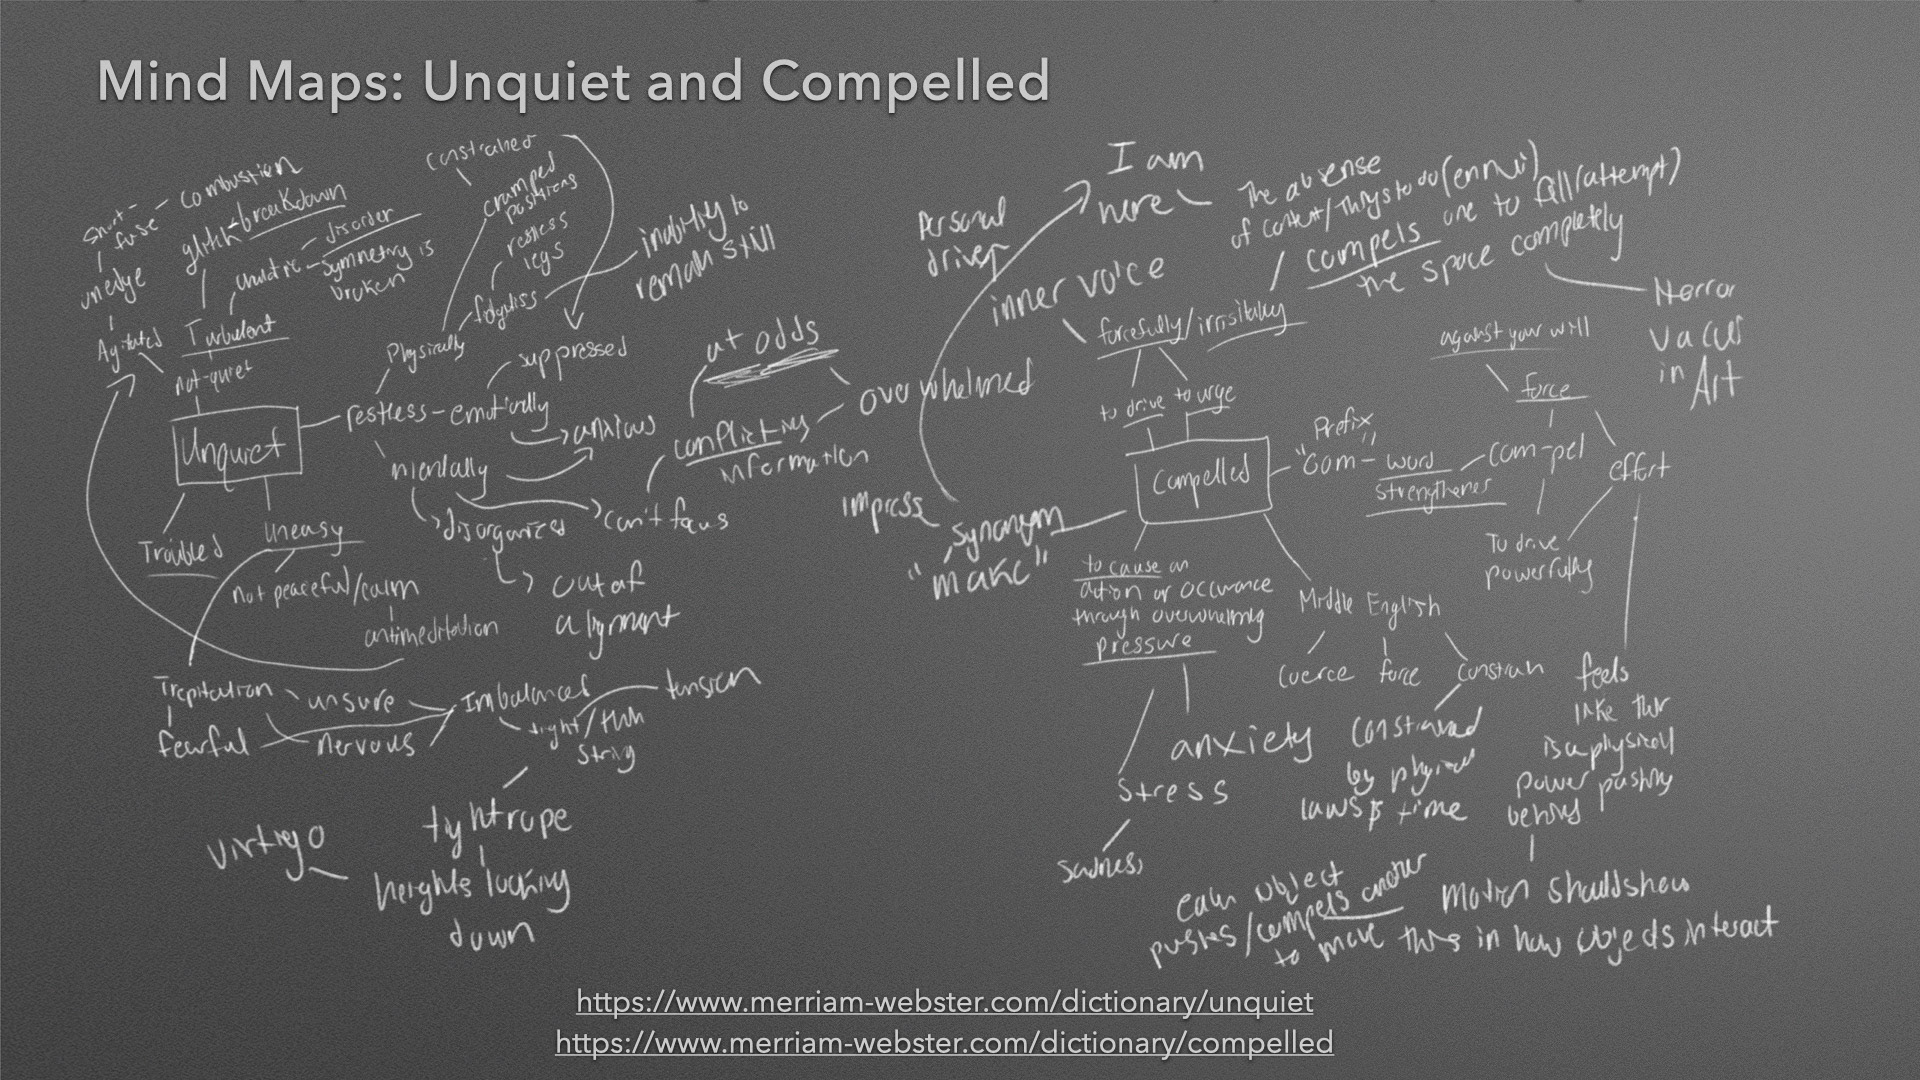 Mind Maps: Unquiet and Compelled
Short-
fuse
Combustion
glitch
breakdown
on edge
Agitated
Turbulent
chaotic
disorder
symmetry is
broken
not-quiet
Unquiet
Troubled
uneasy
Not peaceful/calm
antimeditation
constrained
cramped
positions
restless
legs
Physically
inability to
remain still
restless
emotionally
suppressed
anxious
mentally
disorganized
out of
alignment
can't focus
conflicting
information
at odds
overwhelmed
Trepitation
fearful
unsure
nervous
Imbalanced
tight/thin
string
tension
tightrope
heights looking
down
virtiego
I am
here
Personal
driver
inner voice
The absense
of content/things to do (ennui)
compels one to fill (attempt)
the space completly
Horror
Vacus
in Art
forcefully/irrisitably
to drive
to urge
Compelled
Prefix
"Com-"
word
strengthener
com-pel
against your will
force
effort
To drive
powerfully
feels
like ther
is a physicall
power pushing
behind
impress
synonym
"make"
to cause an
action or occurance
through overwhelming
pressure
stress
sadness
anxiety
Middle English
Coerce
force
Constrain
Constrained
by physical
laws & time
each object
pushes/compels another
to move
Motion should show
this in how objects interact
https://www.merriam-webster.com/dictionary/unquiet
https://www.merriam-webster.com/dictionary/compelled